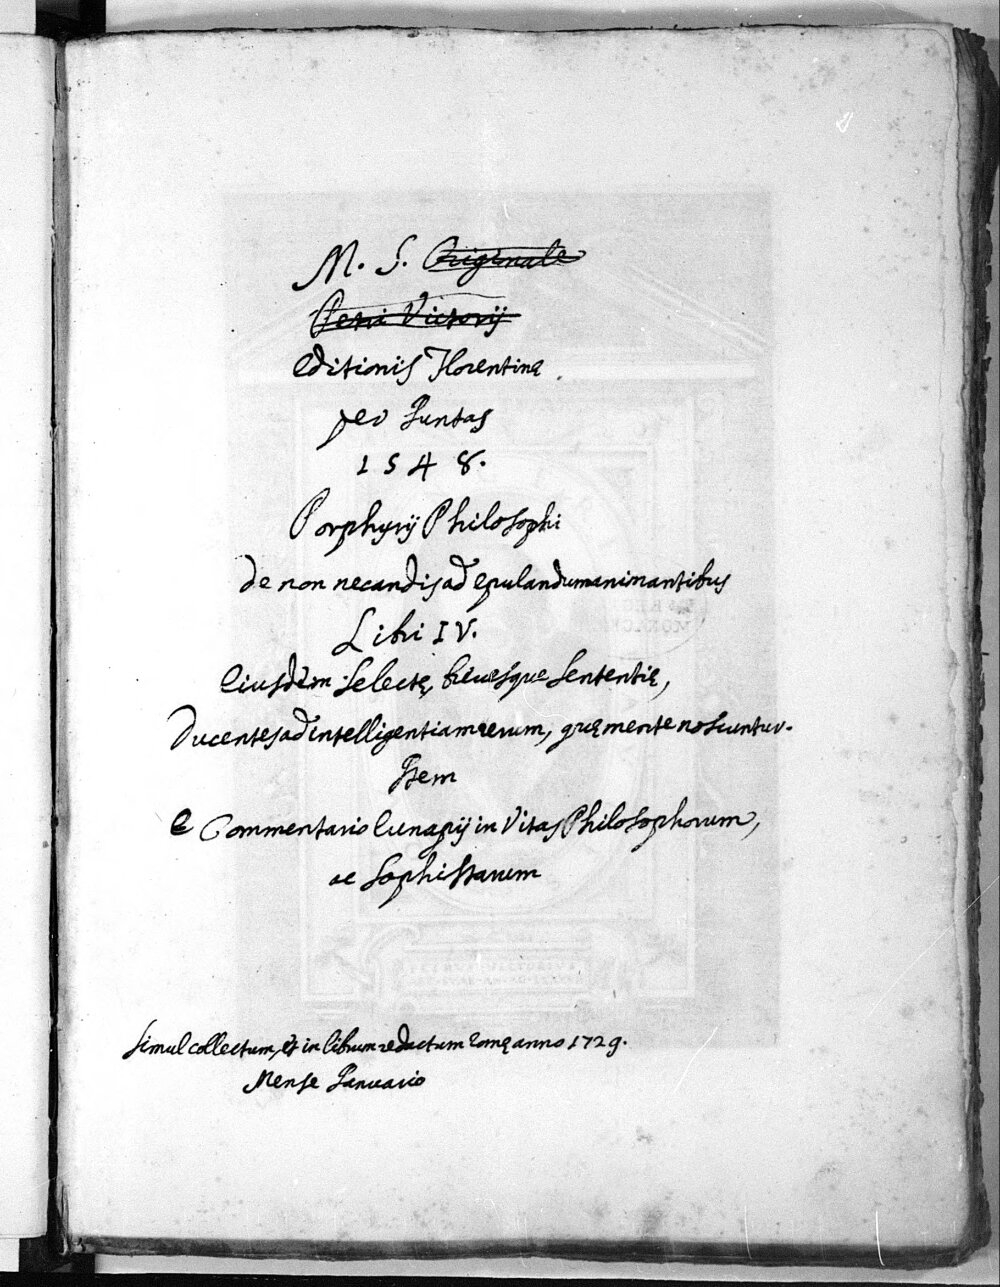 M. S. Originale
Petri Victorij
editionis Florentinę
per Iuntas
1548.
Porphyrij Philosophi
de non necandis ad epulandum animantibus
Libri IV.
Eiusdem selectę, breuesque sententię,
Ducentes ad intelligentiam rerum, quę mente noscuntur.
Item
e Commentario Eunapij in Vitas Philosophorum,
ac Sophistarum
Simul collectum, et in librum redactum Romę anno 1729.
Mense Ianuario